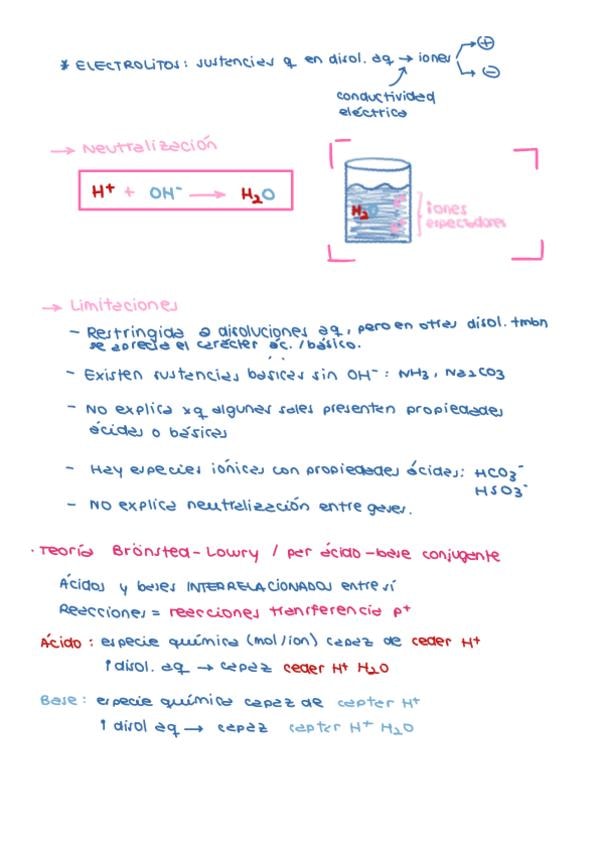 * ELECTROLITOS: sustancias q en disol. aq → iones ⊕
⊖
conductividad
eléctrica
→ Neutralización
H⁺ + OH⁻ → H₂O
H₂O
iones
espectadores
→ Limitaciones
- Restringida a disoluciones aq, pero en otras disol. tmbn
se aprecia el carácter ác./básico.
- Existen sustancias básicas sin OH⁻: NH₃, Na₂CO₃
- NO explica xq algunas sales presentan propiedades
ácidas o básicas
- Hay especies iónicas con propiedades ácidas: HCO₃⁻
HSO₃⁻
- NO explica neutralización entre gases.
· Teoría Brönsted-Lowry / par ácido-base conjugante
Ácidos y bases INTERRELACIONADOS entre sí
Reacciones = reacciones transferencia p⁺
Ácido: especie química (mol/ion) capaz de ceder H⁺
↑ disol. aq → capaz ceder H⁺ H₂O
Base: especie química capaz de captar H⁺
↑ disol aq → capaz captar H⁺ H₂O